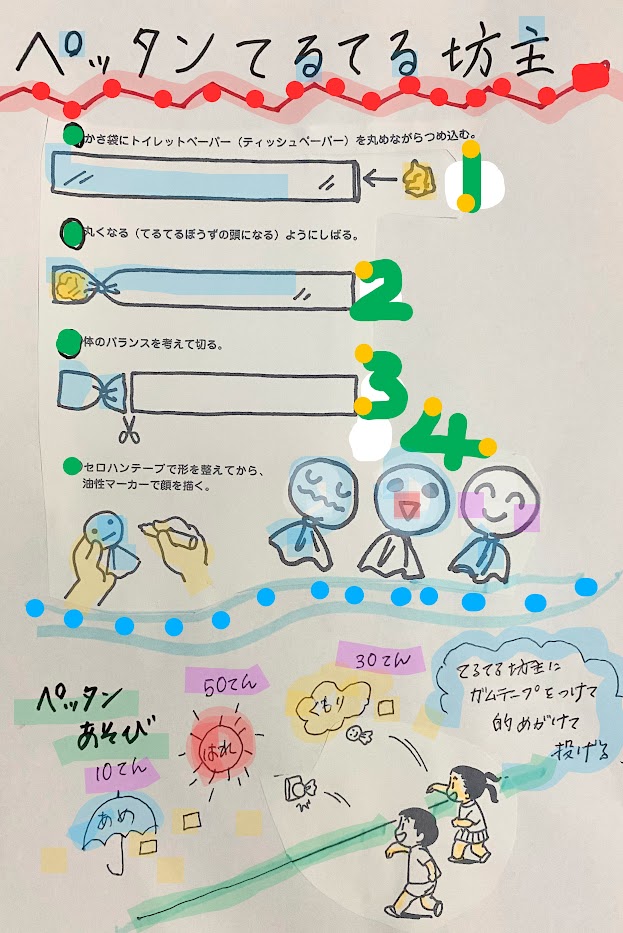 ペッタンてるてる坊主
かさ袋にトイレットペーパー(ティッシュペーパー)を丸めながらつめ込む。
1
丸くなる(てるてるぼうずの頭になる)ようにしばる。
2
体のバランスを考えて切る。
3
4
セロハンテープで形を整えてから、
油性マーカーで顔を描く。
ペッタン
あそび
10てん
あめ
50てん
はれ
30てん
くもり
てるてる坊主に
ガムテープをつけて
的めがけて
投げる